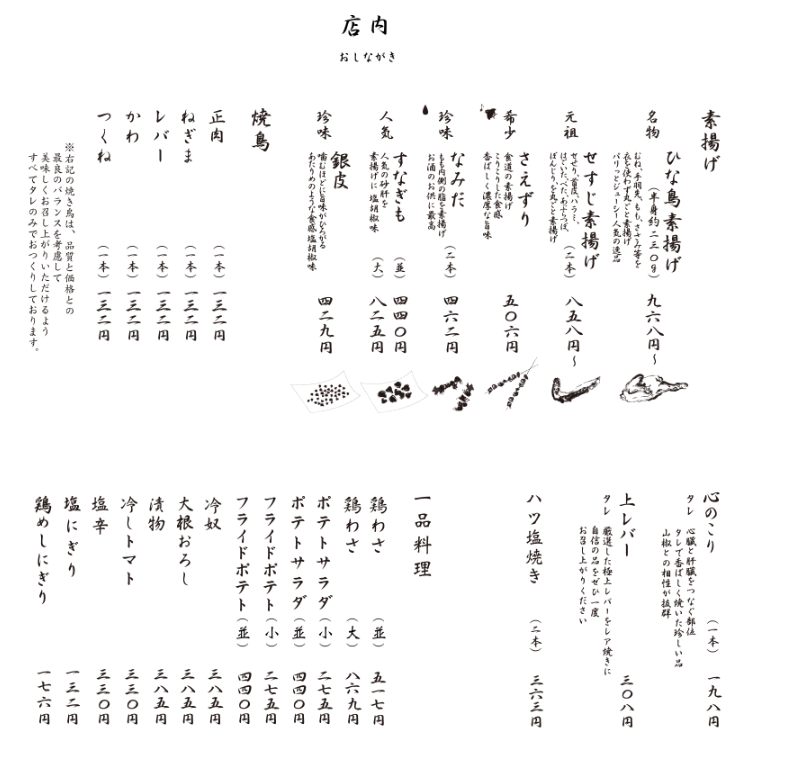 店内
おしながき
素揚げ
名物
ひな鳥素揚げ
(半身約二三〇g)
むね、手羽先、もも、ささみ等を
衣を使わず丸ごと素揚げ
パリっとジューシー人気の逸品
九六八円~
元祖
せすじ素揚げ
(二本)
せせり、首皮、ハラミ、
はごいた、ぺた、あぶらつぼ、
ぼんじり、を丸ごと素揚げ
八五八円~
希少
さえずり
食道の素揚げ
こりこりした食感
香ばしく濃厚な旨味
五〇六円
珍味
なみだ
(二本)
もも内側の脂を素揚げ
お酒のお供に最高
四六二円
人気
すなぎも
(並)
四四〇円
人気の砂肝を
素揚げに 塩胡椒味
(大)
八二五円
珍味
銀皮
噛むほどに旨味がひろがる
あたりめのような食感 塩胡椒味
四二九円
焼鳥
正肉 (一本) 一三二円
ねぎま (一本) 一三二円
レバー (一本) 一三二円
かわ (一本) 一三二円
つくね (一本) 一三二円
※右記の焼き鳥は、品質と価格との
最良のバランスを考慮して
美味しくお召し上がりいただけるよう
すべてタレのみでおつくりしております。
心のこり (一本) 一九八円
タレ 心臓と肝臓をつなぐ部位
タレで香ばしく焼いた珍しい品
山椒との相性が抜群
上レバー 三〇八円
タレ 厳選した極上レバーをレア焼きに
自信の品をぜひ一度
お召し上がりください
ハツ塩焼き (二本) 三六三円
一品料理
鶏わさ (並) 五一七円
鶏わさ (大) 八六九円
ポテトサラダ (小) 二七五円
ポテトサラダ (並) 四四〇円
フライドポテト (小) 二七五円
フライドポテト (並) 四四〇円
冷奴 三八五円
大根おろし 三八五円
漬物 三八五円
冷しトマト 三三〇円
塩辛 三三〇円
塩にぎり 一三二円
鶏めしにぎり 一七六円